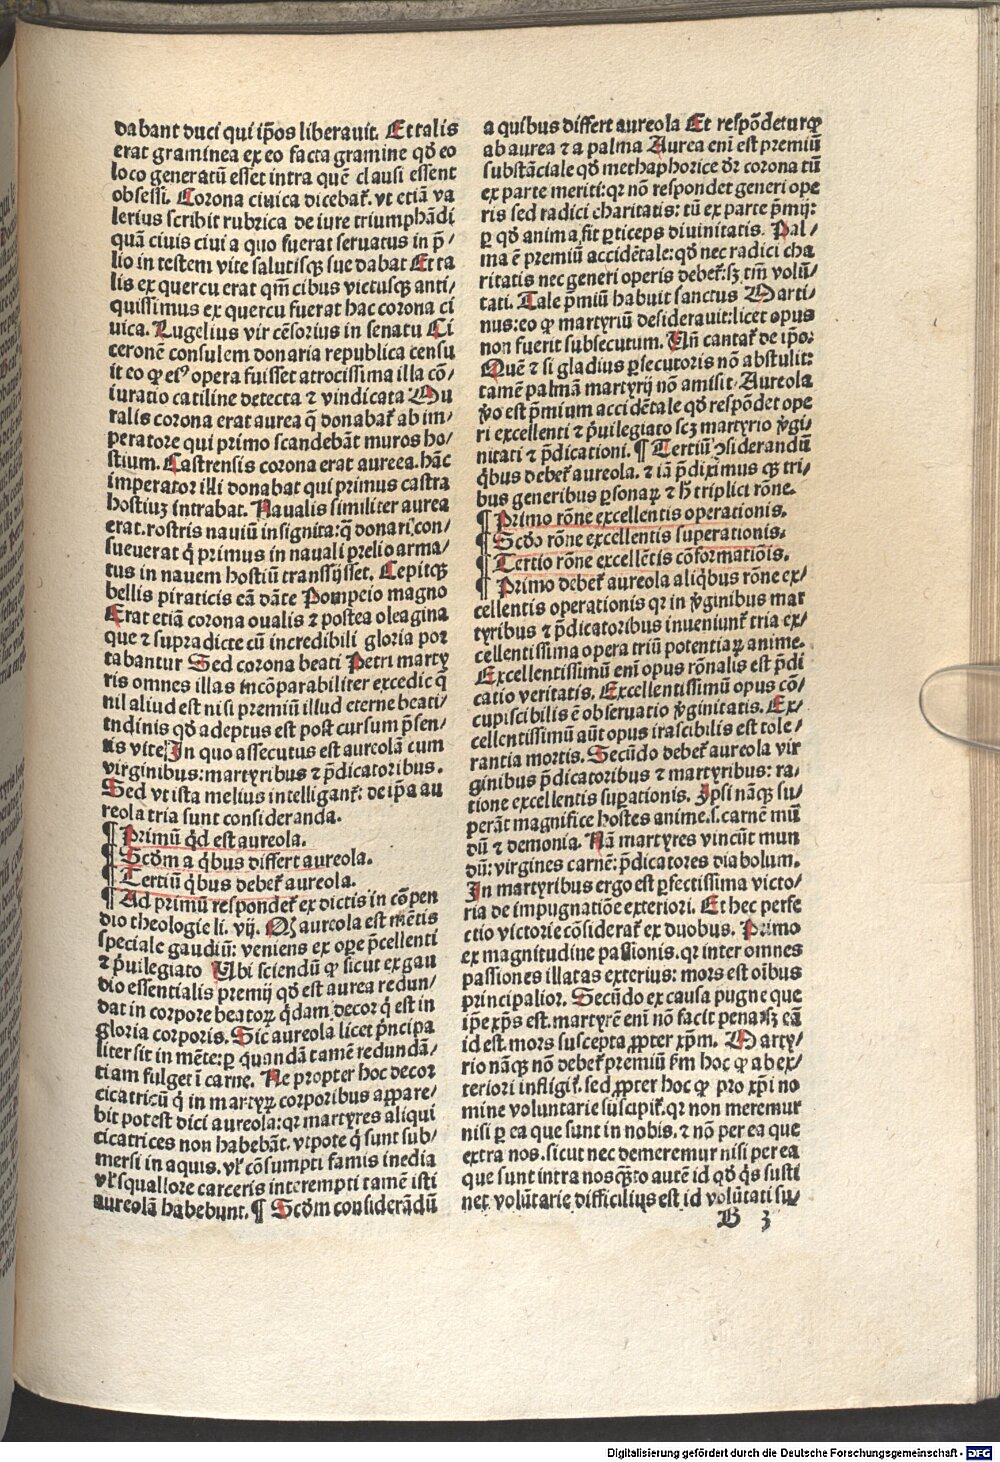 dabant duci qui ip̄os liberauit. Et talis
erat graminea ex eo facta gramine qd̄ eo
loco generatū esset intra quē clausi essent
obsessi. Corona ciuica dicebaƭ. vt etiā va
lerius scribit rubrica de iure triumphādi
quā ciuis ciui a quo fuerat seruatus in p̄/
lio in testem vite salutisqꝫ sue dabat Et ta
lis ex quercu erat qm̄ cibus victusqꝫ anti/
quissimus ex quercu fuerat hac corona ci
uica. Lugelius vir cēsorius in senatu Ci
ceronē consulem donari a republica censu
it eo ꝙ eiꝰ opera fuisset atrocissima illa cō/
iuratio catiline detecta ⁊ vindicata Mu
ralis corona erat aurea q̄ donabaƭ ab im/
peratore qui primo scandebāt muros ho/
stium. Castrensis corona erat aureea. hāc
imperator illi donabat qui primus castra
hostiuꝫ intrabat. Naualis similiter aurea
erat. rostris nauiū insignita: q̄ donari con/
sueuerat q̇ primus in nauali prelio arma/
tus in nauem hostiū transsijsset. Cepitqꝫ
bellis piraticis eā dāte Pompeio magno
Erat etiā corona oualis ⁊ postea oleagina
que ⁊ supradicte cū incredibili gloria por
tabantur Sed corona beati Petri marty
ris omnes illas incōparabiliter excedic q̄
nil aliud est nisi premiū illud eterne beati/
tndinis qd̄ adeptus est post cursum p̄sen/
tis vite In quo assecutus est aureolā cum
virginibus: martyribus ⁊ p̄dicatoribus.
Sed vt ista melius intelliganƭ: de ip̄a au
reola tria sunt consideranda.
¶ Primū qͥd est aureola.
¶ Scd̄m a qͥbus differt aureola.
¶ Tertiū qͥbus debeƭ aureola.
¶ Ad primū respondeƭ ex dictis in cōpen
dio theologie li. vij. Ꝙ aureola est mētis
speciale gaudiū: veniens ex oꝑe p̄cellenti
⁊ p̄uilegiato Ubi sciendū ꝙ sicut ex gau
dio essentialis premij qd̄ est aurea redun/
dat in corpore beatoꝝ qͥdam decor q̇ est in
gloria corporis. Sic aureola licet pͥncipa
liter sit in mēte: ꝑ quandā tamē redundā/
tiam fulget ī carne. Ne propter hoc decor
cicatricū q̇ in martyꝝ corporibus appare/
bit potest dici aureola: qꝛ martyres aliqui
cicatrices non habebāt. vtpote q̇ sunt sub/
mersi in aquis. vƚ cōsumpti famis inedia
vƚ squallore carceris interempti tamē isti
aureolā habebunt. ¶ Scd̄m considerādū
a quibus differt aureola Et respōdetur ꝙ
ab aurea ⁊ a palma Aurea eni est premiū
substāciale qd̄ methaphorice dr̄ corona tū
ex parte meriti: qꝛ nō respondet generi ope
ris sed radici charitatis: tū ex parte p̄mij:
ꝑ qd̄ anima fit ꝑticeps diuinitatis. Pal/
ma ē premiū accidētale: qd̄ nec radici cha
ritatis nec generi operis debeƭ: sꝫ tm̄ volū/
tati. Tale p̄miū habuit sanctus Marti/
nus: eo ꝙ martyriū desiderauit: licet opus
non fuerit subsecutum. Un̄ cantaƭ de ip̄o:
Quē ⁊ si gladius ꝑsecutoris nō abstulit:
tamē palmā martyrij nō amisit. Aureola
v̊o est p̄mium accidētale qd̄ respōdet ope
ri excellenti ⁊ p̄uilegiato scꝫ martyrio v̊gi/
nitati ⁊ p̄dicationi. ¶ Tertiū ꝯsiderandū
qͥbus debeƭ aureola. ⁊ iā p̄diximus qꝫ tri/
bus generibus ꝑsonaꝝ ⁊ h̄ triplici rōne.
¶ Primo rōne excellentis operationis.
¶ Scd̄o rōne excellentis superationis.
¶ Tertio rōne excellētis cōformatiōis.
¶ Primo debeƭ aureola aliqͥbus rōne ex/
cellentis operationis qꝛ in v̊ginibus mar
tyribus ⁊ p̄dicatoribus inueniunƭ tria ex/
cellentissima opera triū potentiaꝝ anime.
Excellentissimū eni opus rōnalis est p̄di
catio veritatis. Excellentissimū opus cō/
cupiscibilis ē obseruatio v̊ginitatis. Ex/
cellentissimū aūt opus irascibilis est tole/
rantia mortis. Secūdo debeƭ aureola vir
ginibus p̄dicatoribus ⁊ martyribus: ra/
tione excellentis suꝑationis. Ipsi nāqꝫ su/
perāt magnifice hostes anime. s. carnē mū
dū ⁊ demonia. Nā martyres vincūt mun
dū: virgines carnē: p̄dicatores diabolum.
In martyribus ergo est ꝑfectissima victo/
ria de impugnatiōe exteriori. Et hec perfe
ctio victorie cōsideraƭ ex duobus. Primo
ex magnitudine passionis. qꝛ inter omnes
passiones illatas exterius: mors est oībus
principalior. Secūdo ex causa pugne que
ip̄e xp̄s est. martyrē eni nō facit pena sꝫ cā
id est mors suscepta ꝓpter xp̄m. Marty/
rio nāqꝫ nō debeƭ premiū ẜm hoc ꝙ ab ex/
teriori infligiƭ. sed ꝓpter hoc ꝙ pro xp̄i no
mine voluntarie suscipiƭ. qꝛ non meremur
nisi ꝑ ea que sunt in nobis. ⁊ nō per ea que
extra nos. sicut nec demeremur nisi per ea
que sunt intra nos qꝫto autē id qd̄ qͥs susti
net volūtarie difficiliꝰ est id volūtati su/
B 3
Digitalisierung gefördert durch die Deutsche Forschungsgemeinschaft - DFG